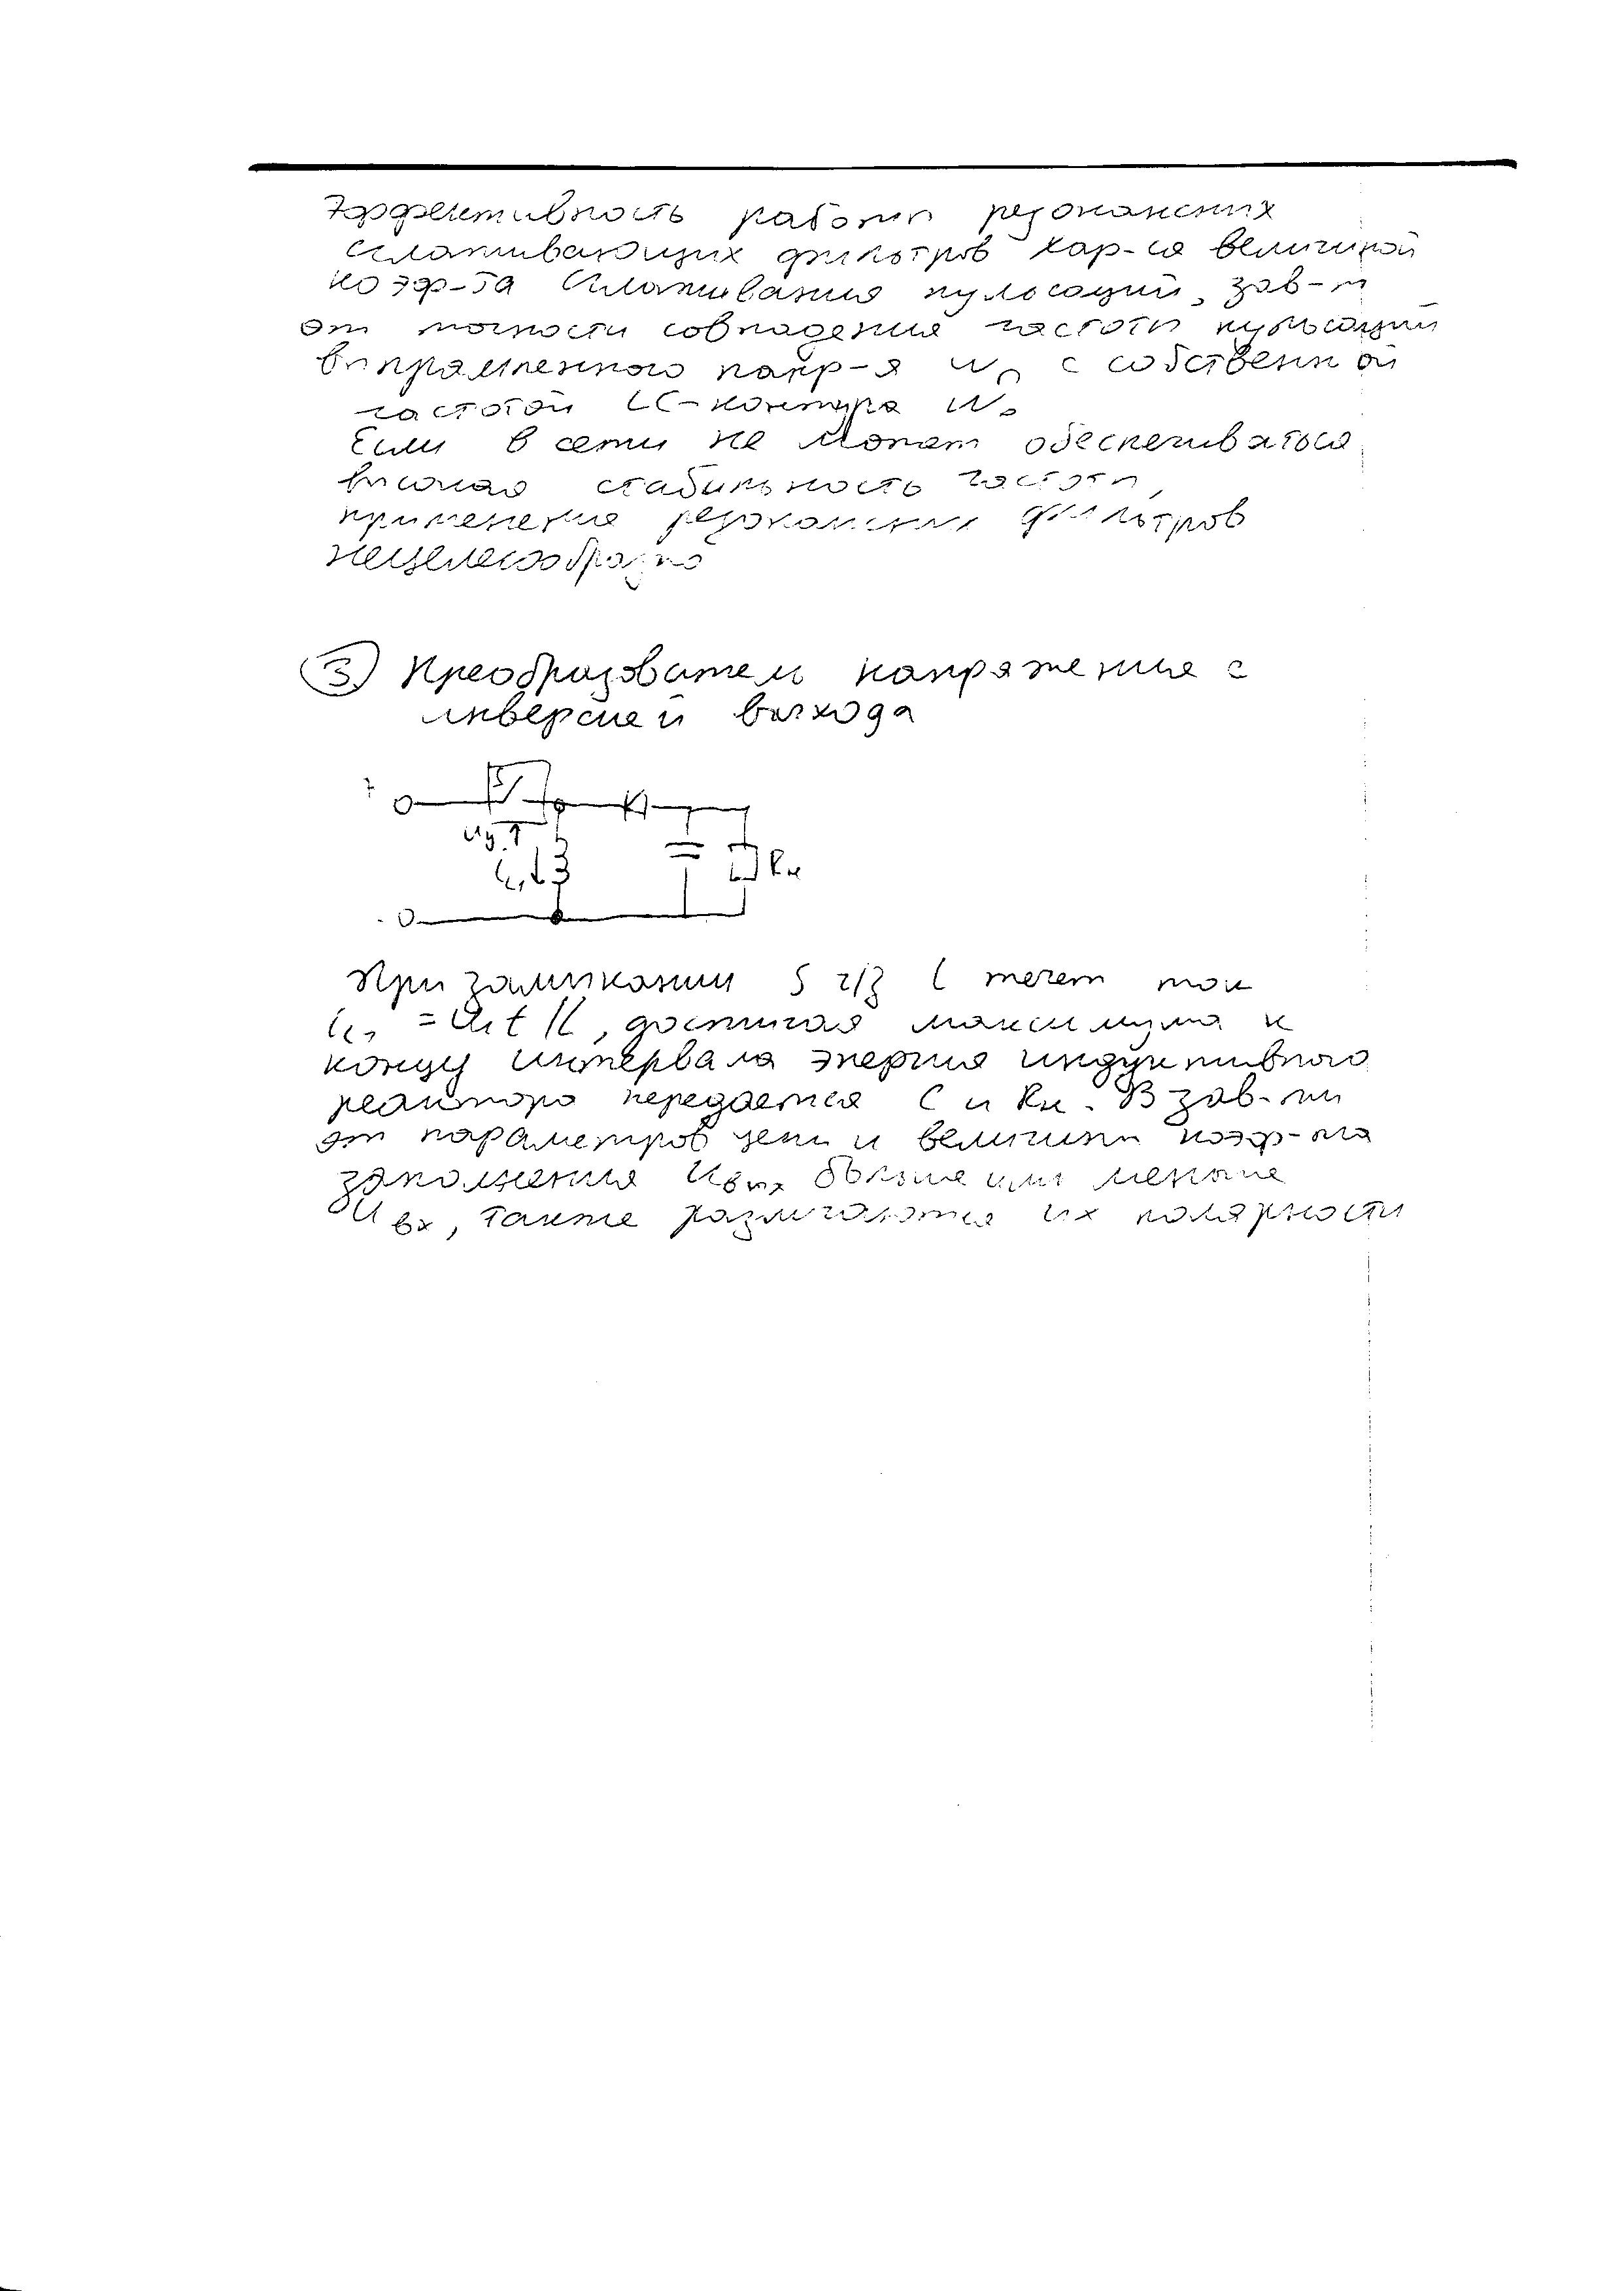 Эффективность работы резонансных
сглаживающих фильтров хар-ся величиной
коэф-та сглаживания пульсаций, зав-т
от точности совпадения частоты пульсации
выпрямленного напр-я ωп с собственной
частотой LC-контура ω₀
Если в сети не может обеспечиваться
высокая стабильность частоты,
применение резонансных фильтров
нецелесообразно
③ Преобразователи напряжения с
инверсией выхода
Rн
При замыкании S ч/з L течет ток
= U₁t/L, достигая максимума к
концу интервала энергия индуктивного
реактора передается C и Rн. В зав-ти
от параметров цепи и величины коэф-та
заполнения Uвых больше или меньше
Uвх, также различаются их полярности